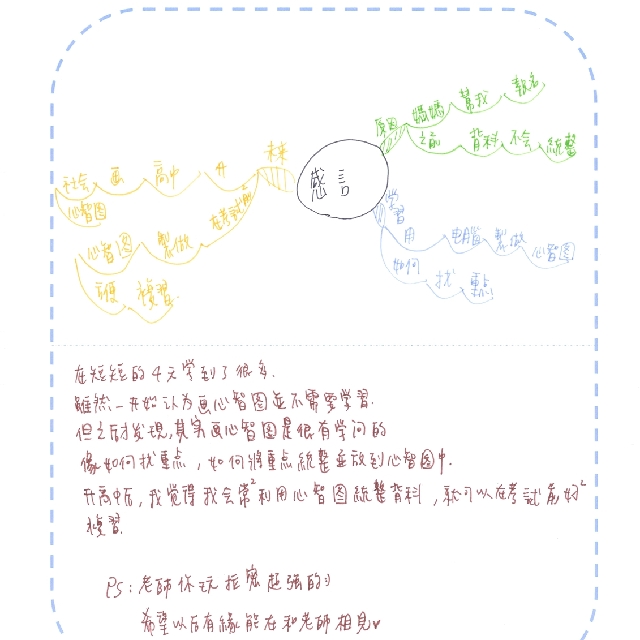 感言
原因
媽媽 幫我 報名
之前 背科 不会 統整
学習
用 电腦 製做 心智图
如何 找 重点
未來
升 高中 画 社会
心智图
在考試前
製做 心智图
方便 複習
在短短的4天学到了很多.
雖然一开始认为画心智图並不需要学習.
但之后才发現,其实画心智图是很有学问的
像如何找重点,如何將重点統整並放到心智图中.
升高中后,我觉得我会常²利用心智图統整背科,就可以在考試前好²
複習.
PS:老師你玩拒密超强的:)
希望以后有緣能在和老師相見♥